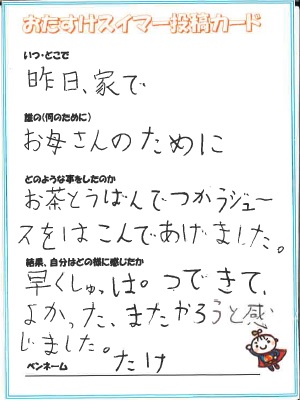 おたすけスイマー投稿カード
いつ・どこで
昨日、家で
誰の(何のために)
お母さんのために
どのような事をしたのか
お茶とうばんでつかうジュー
スをはこんであげました。
結果、自分はどの様に感じたか
早くしゅっぱつできて、
よかった、またやろうと感
じました。
ペンネーム たけ